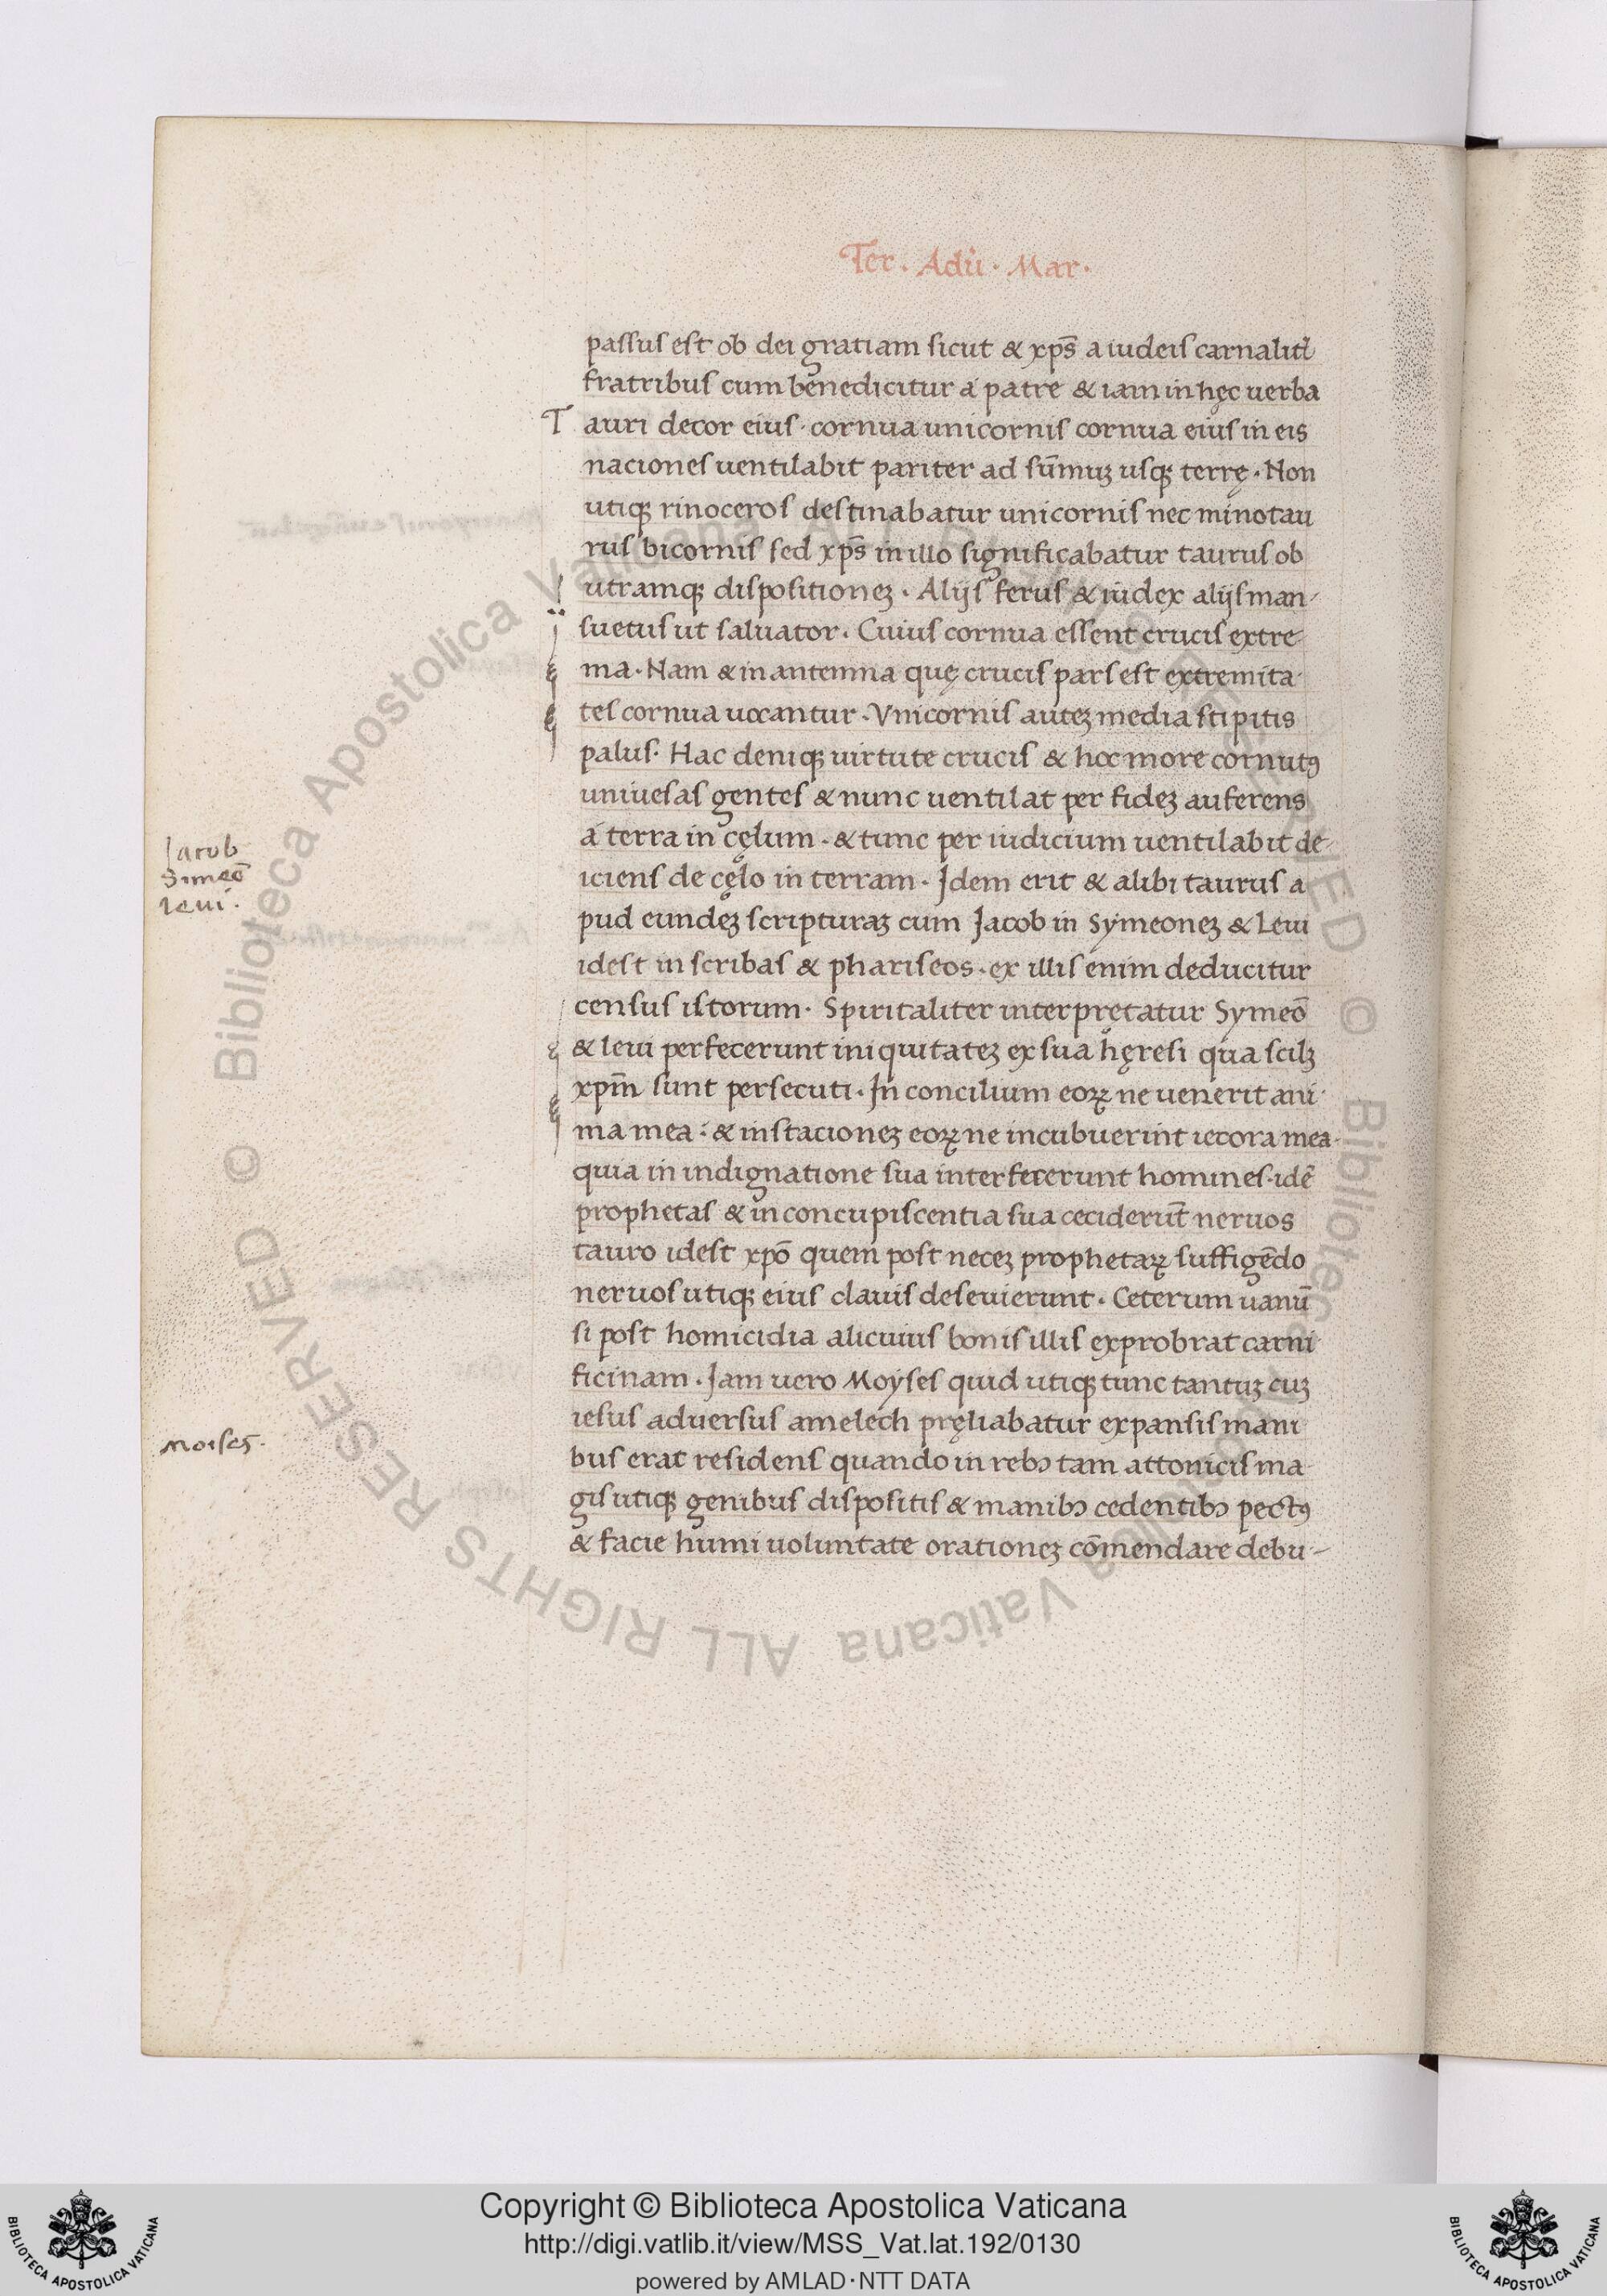 Ter. Adu̅. Mar.
passus est ob dei gratiam sicut & xp̅s a iudeis carnalit̅
fratribus cum benedicitur a patre & iam in hęc uerba
Tauri decor eius. cornua unicornis cornua eius in eis
naciones uentilabit pariter ad su̅muꝫ usqꝫ terrę. Non
utiqꝫ rinoceros destinabatur unicornis nec minotau
rus bicornis sed xp̅s in illo significabatur taurus ob
utramqꝫ dispositioneꝫ. Alijs ferus & iudex alijs man-
suetus ut saluator. Cuius cornua essent crucis extre-
ma. Nam & in antemna quę crucis pars est extremita-
tes cornua uocantur. Vnicornis auteꝫ media stipitis
palus. Hac deniqꝫ uirtute crucis & hoc more cornutꝰ
uniuesas gentes & nunc uentilat per fideꝫ auferens
a terra in cęlum. & tunc per iudicium uentilabit de-
iciens de cęlo in terram. Idem erit & alibi taurus a
pud eundeꝫ scripturaꝫ cum Jacob in Symeoneꝫ & Leui
idest in scribas & phariseos. ex illis enim deducitur
census istorum. Spiritaliter interpretatur Symeo̅
& leui perfecerunt iniquitateꝫ ex sua hęresi qua scilꝫ
xpm̅ sunt persecuti. In concilium eoꝝ ne uenerit ani-
ma mea: & in stacioneꝫ eoꝝ ne incubuerint iecora mea.
quia in indignatione sua interfecerunt homines. ide̅
prophetas & in concupiscentia sua cecideru̅t neruos
tauro idest xpo̅ quem post neceꝫ prophetaꝝ suffige̅do
neruos utiqꝫ eius clauis deseuierunt. Ceterum uanu̅
si post homicidia alicuius bonis illis exprobrat carni
ficinam. Jam uero Moyses quid utiqꝫ tunc tantuꝫ cuꝫ
iesus aduersus amelech pręliabatur expansis mani
bus erat residens quando in rebꝰ tam attonicis ma
gis utiqꝫ genibus dispositis & manibꝰ cedentibꝰ pectꝰ
& facie humi uoluntate orationeꝫ co̅mendare debu-
Jacob
Simeo̅
leui.
Moises.
Copyright © Biblioteca Apostolica Vaticana
http://digi.vatlib.it/view/MSS_Vat.lat.192/0130
powered by AMLAD·NTT DATA
BIBLIOTECA APOSTOLICA VATICANA
BIBLIOTECA APOSTOLICA VATICANA
© Biblioteca Apostolica Vaticana ALL RIGHTS RESERVED